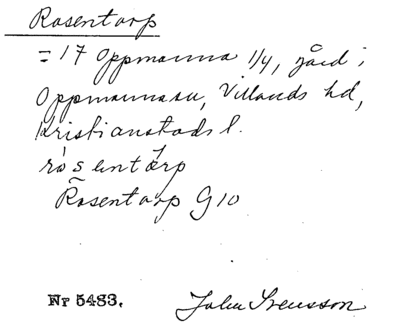 Rosentorp
= 17 Oppmanna 1/4, gård i
Oppmanna sn, Villands hd,
Kristianstads l.
ró̀sentårp
Rosentorp G10
Nr 5483. John Svensson